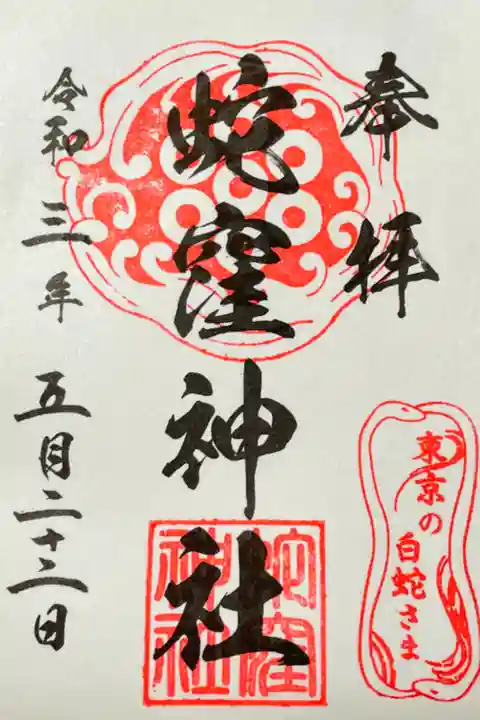 奉拝
蛇窪神社
蛇窪
神社
令和三年五月二十二日
東京の
白蛇さま